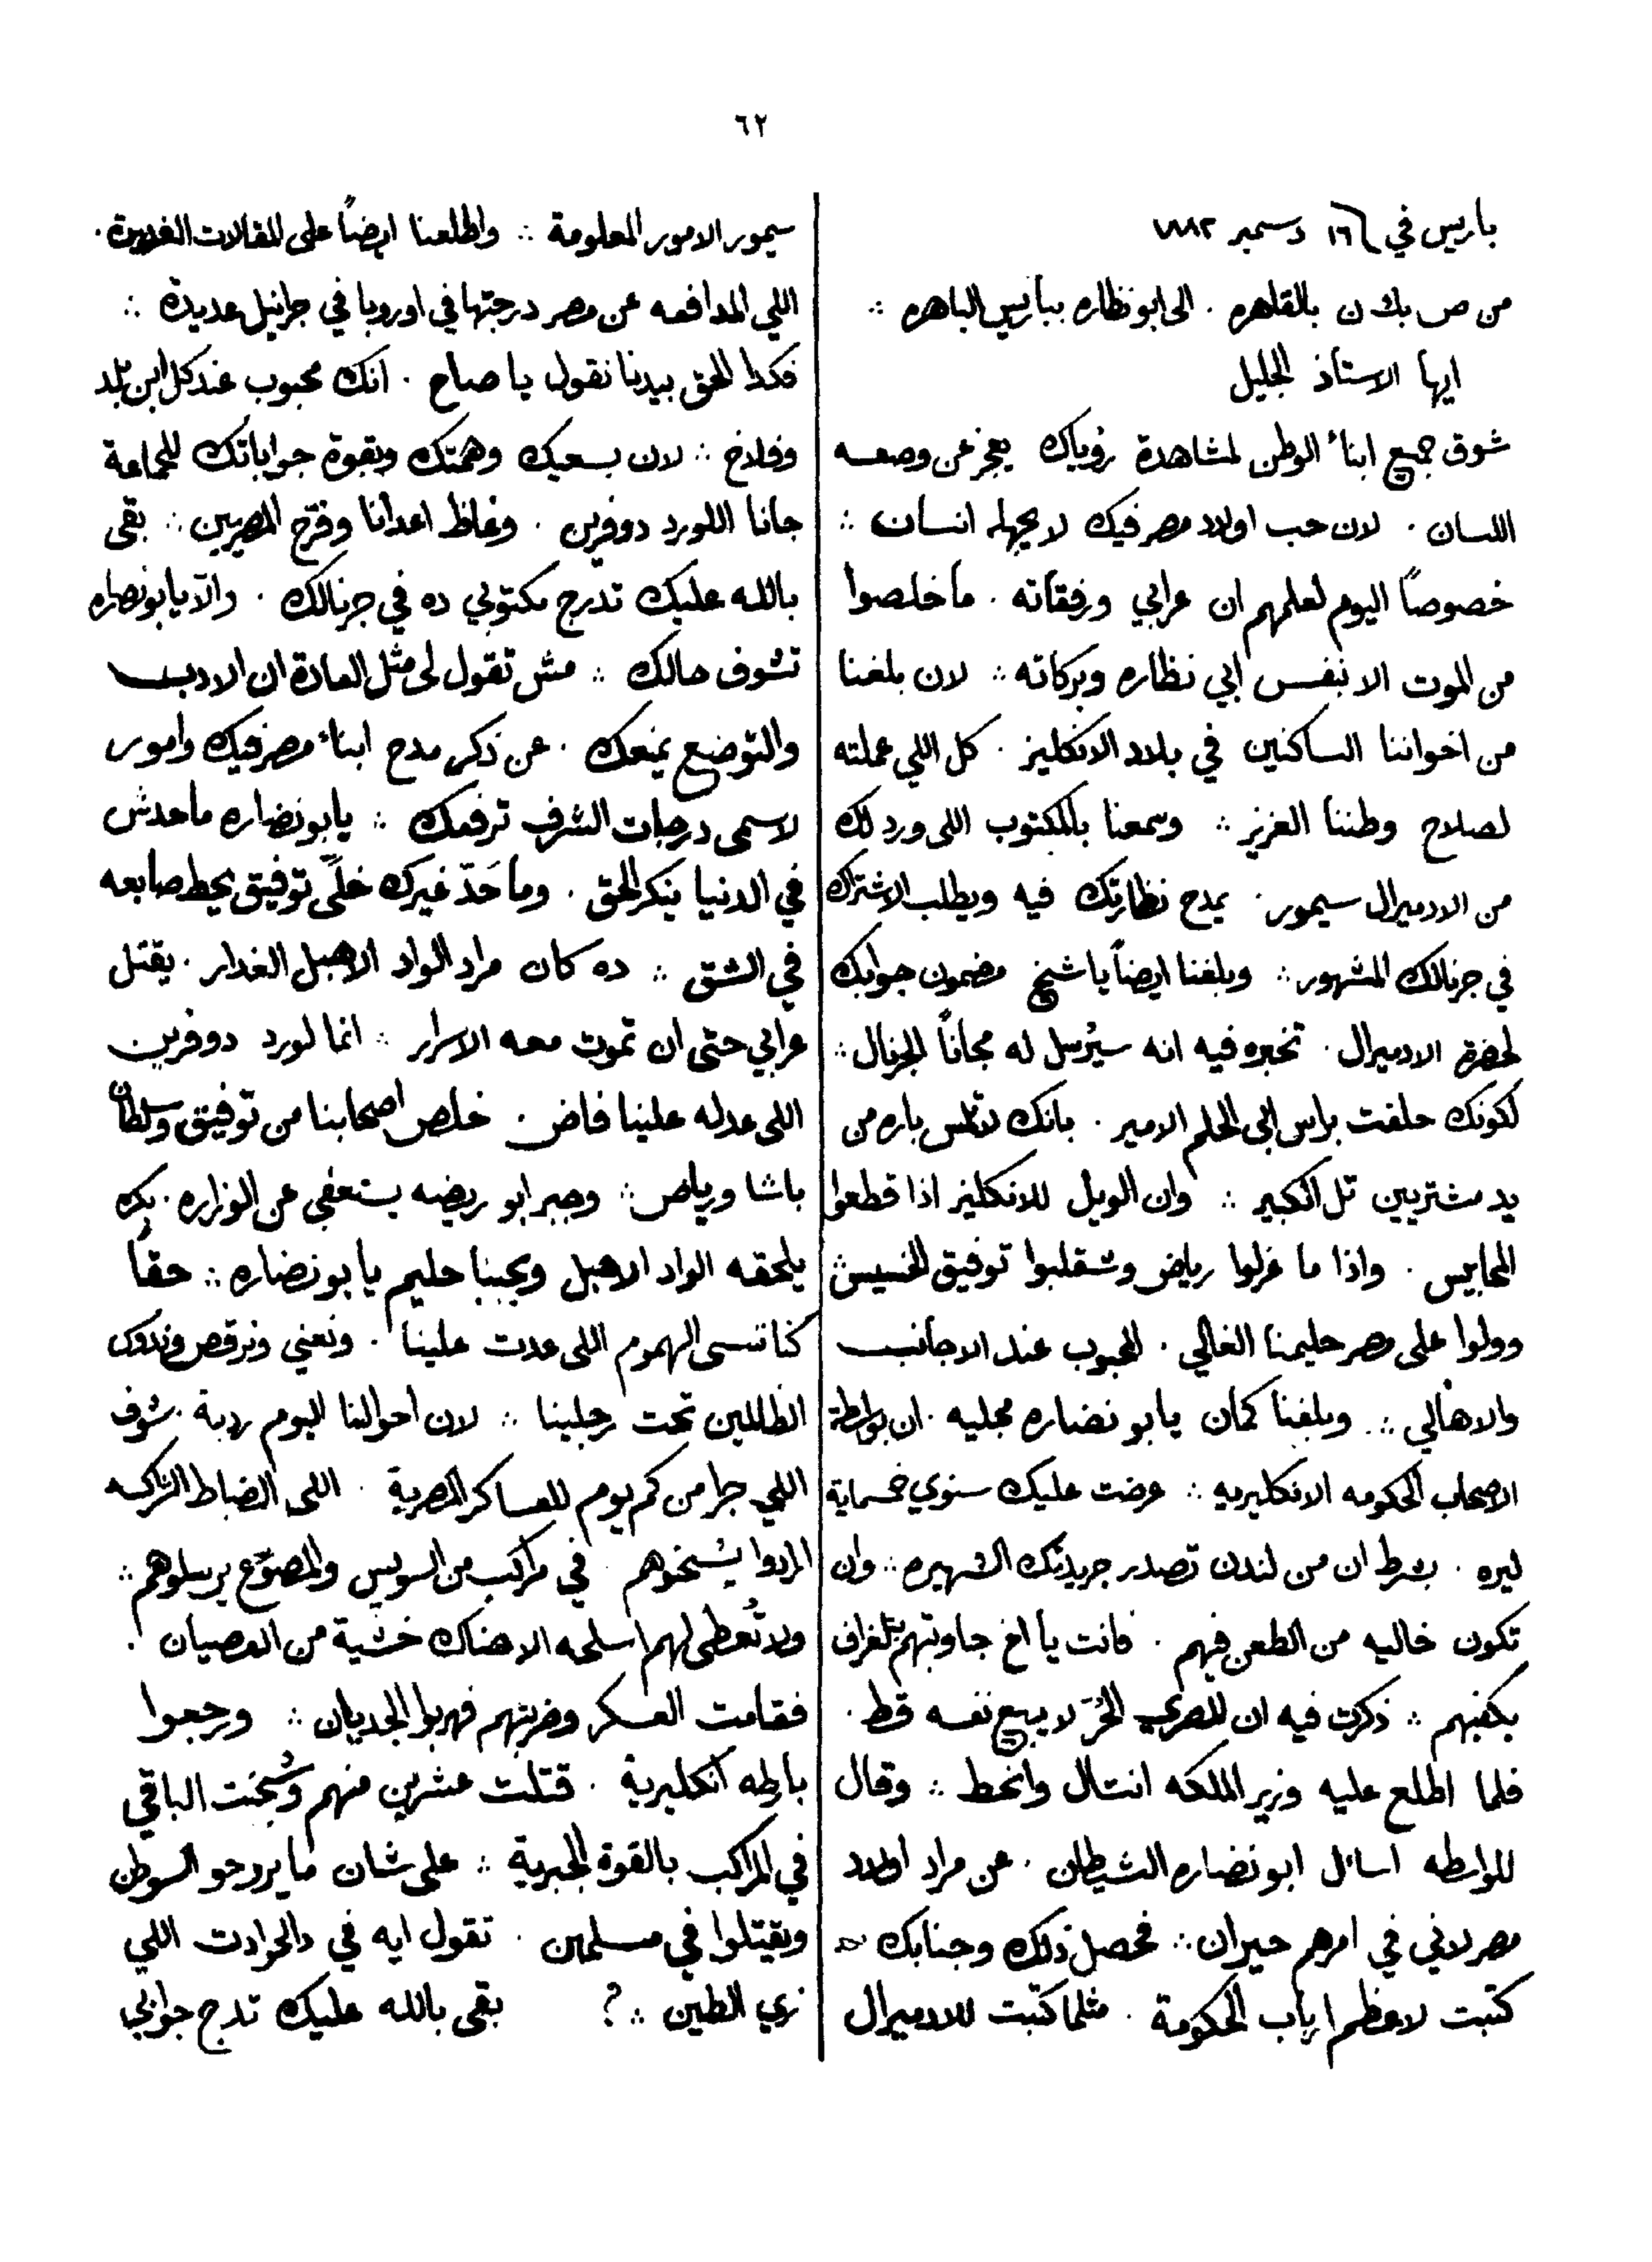 ٦٢
باريس في ١٦ دسمبر ١٨٨٢
من ص بك ن بالقاهره . الى ابو نظاره بباريس الباهره ∴
ايها الاستاذ الجليل
شوق جميع ابناء الوطن لمشاهدة رؤياك يعجز عن وصفه
اللسان . لان حب اولاد مصر فيك لا يجهله انسان ∴
خصوصاً اليوم لعلمهم ان عرابي ورفقاته . ما خلصوا
من الموت الا بنفس ابي نظاره وبركاته ∴ لان بلغنا
من اخواننا الساكنين في بلاد الانكليز . كل اللي عملته
لصلاح وطننا العزيز ∴ وسمعنا بالمكتوب اللى ورد لك
من الادميرال سيمور . يمدح نظارتك فيه ويطلب الاشتراك
في جرنالك المشهور ∴ وبلغنا ايضاً يا شيخ مضمون جوابك
لحضرة الادميرال . تخبره فيه انه سيُرسل له مجاناً الجرنال ∴
لكونك حلفت براس ابى الحلم الامير . بانك لا تلمس باره من
يد مشتريين تل الكبير ∴ وان الويل للانكليز اذا قطعوا
المحابيس . واذا ما عزلوا رياض وشقلبوا توفيق الخسيس ∴
وولوا على مصر حليمنا الغالي . المحبوب عند الاجانب
والاهالي ∴ وبلغنا كمان يا بو نضاره مجليه . ان بواسطة
الاصحاب الحكومه الانكليريه ∴ عرضت عليك سنوي خمسماية
ليره . بشرط ان من لندن تصدر جريدتك الشهيره ∴ وان
تكون خاليه من الطعن فيهم . فانت يا اخ جاوبتهم بتلغراف
يكفيهم ∴ ذكرت فيه ان المصري الحُرّ لا يبيع نفسه قط .
فلما اطلع عليه وزير الملكه انتال وانحط ∴ وقال
للواسطه اسال ابو نضاره الشيطان . عن مراد اولاد
مصر لاني في امرهم حيران ∴ فحصل ذلك وجنابك
كتبت لاعظم ارباب الحكومة . مثلما كتبت للادميرال
سيمور الامور المعلومة ∴ واطلعنا ايضاً على المقالات الفريدة .
اللي المدافعه عن مصر درجتها في اوروبا في جرانيل عديدة ∴
فكدا الحق بيدنا نقول يا صاح . انك محبوب عند كل ابن بلد
وفلاخ ∴ لان بسعيك وهمتك وبقوة جواباتك للجماعة
جانا اللورد دوفرين . وغاظ اعدانا وفرّح المصريين ∴ بقى
بالله عليك تدرج مكتوبي ده في جرنالك . والّا يا بو نضاره
تشوف حالك ∴ مش تقول لى مثل العادة ان الادب
والتوضع يمنعك . عن ذكر مدح ابناء مصر فيك وامور
لاسمى درجات الشرف ترفعك ∴ يا بو نضاره ماحدش
في الدنيا ينكر الحق . وما حَدّ غيرك خلّى توفيق يحط صابعه
في الشق ∴ ده كان مراد الواد الاهبل الغدار . يقتل
عرابي حتى ان تموت معه الاسرار ∴ انما لورد دوفرين
اللى عدله علينا فاض . خلص اصحابنا من توفيق وسلطان
باشا ورياض ∴ وجبر ابو ريضه يستعفي عن الوزاره . بكره
يلحقه الواد الاهبل ويجينا حليم يا بو نضاره ∴ حقاً
كنا ننسى الهموم اللى عدت علينا . ونغني ونرقص وندوك
الظالمين تحت رجلينا ∴ لان احوالنا اليوم ردية . شوف
اللي جرا من كم يوم للعساكر المصرية . اللى الضباط الشركسه
ارادوا يشحنوهم . في مراكب من السويس والمصوّع يرسلوهم ∴
ولا تُعطى لهم اسلحه الا هناك خشية من العصيان .
فقامت العسكر وضربتهم فهربوا الجديان ∴ ورجعوا
باورطه انكليرية . قتلت عشرين منهم وشُحنت الباقي
في المراكب بالقوة الجبرية ∴ على شان ما يروحو السوطن
ويقتلوا في مسلمين . تقول ايه في دالحوادت اللي
زي الطين ∴ ? بقى بالله عليك تدرج جوابي